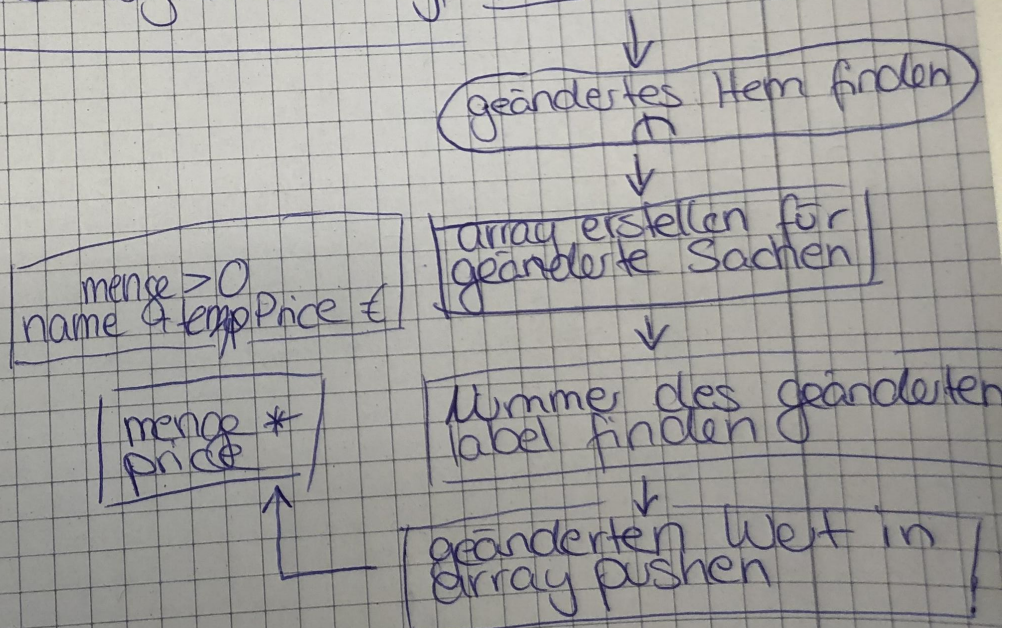 geändertes Item finden
array erstellen für
geänderte Sachen
menge > 0
name & tempPrice €
Nummer des geänderten
label finden
menge *
price
geänderten Wert in
array pushen